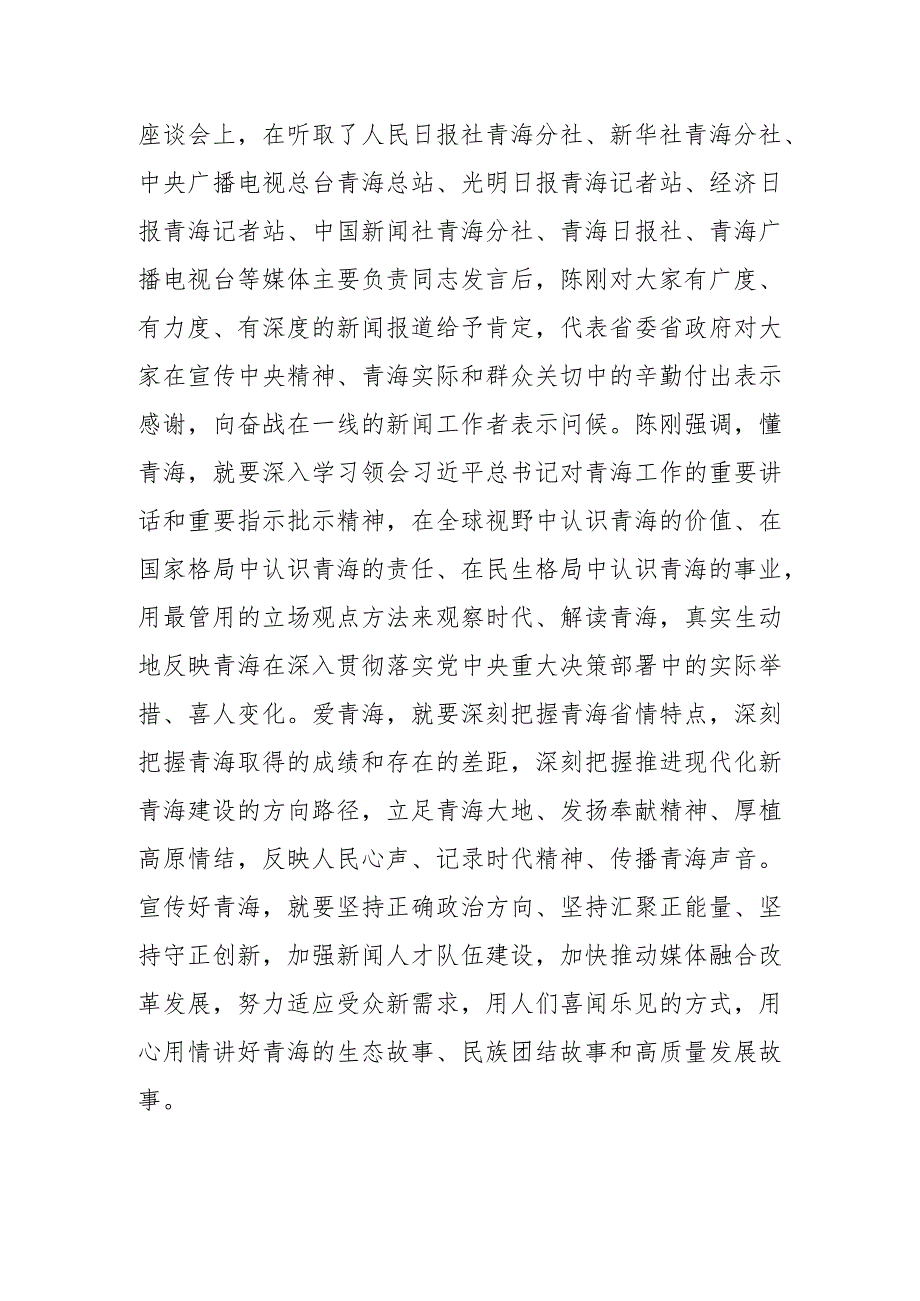 座谈会上，在听取了人民日报社青海分社、新华社青海分社、
中央广播电视总台青海总站、光明日报青海记者站、经济日
报青海记者站、中国新闻社青海分社、青海日报社、青海广
播电视台等媒体主要负责同志发言后，陈刚对大家有广度、
有力度、有深度的新闻报道给予肯定，代表省委省政府对大
家在宣传中央精神、青海实际和群众关切中的辛勤付出表示
感谢，向奋战在一线的新闻工作者表示问候。陈刚强调，懂
青海，就要深入学习领会习近平总书记对青海工作的重要讲
话和重要指示批示精神，在全球视野中认识青海的价值、在
国家格局中认识青海的责任、在民生格局中认识青海的事业，
用最管用的立场观点方法来观察时代、解读青海，真实生动
地反映青海在深入贯彻落实党中央重大决策部署中的实际举
措、喜人变化。爱青海，就要深刻把握青海省情特点，深刻
把握青海取得的成绩和存在的差距，深刻把握推进现代化新
青海建设的方向路径，立足青海大地、发扬奉献精神、厚植
高原情结，反映人民心声、记录时代精神、传播青海声音。
宣传好青海，就要坚持正确政治方向、坚持汇聚正能量、坚
持守正创新，加强新闻人才队伍建设，加快推动媒体融合改
革发展，努力适应受众新需求，用人们喜闻乐见的方式，用
心用情讲好青海的生态故事、民族团结故事和高质量发展故
事。